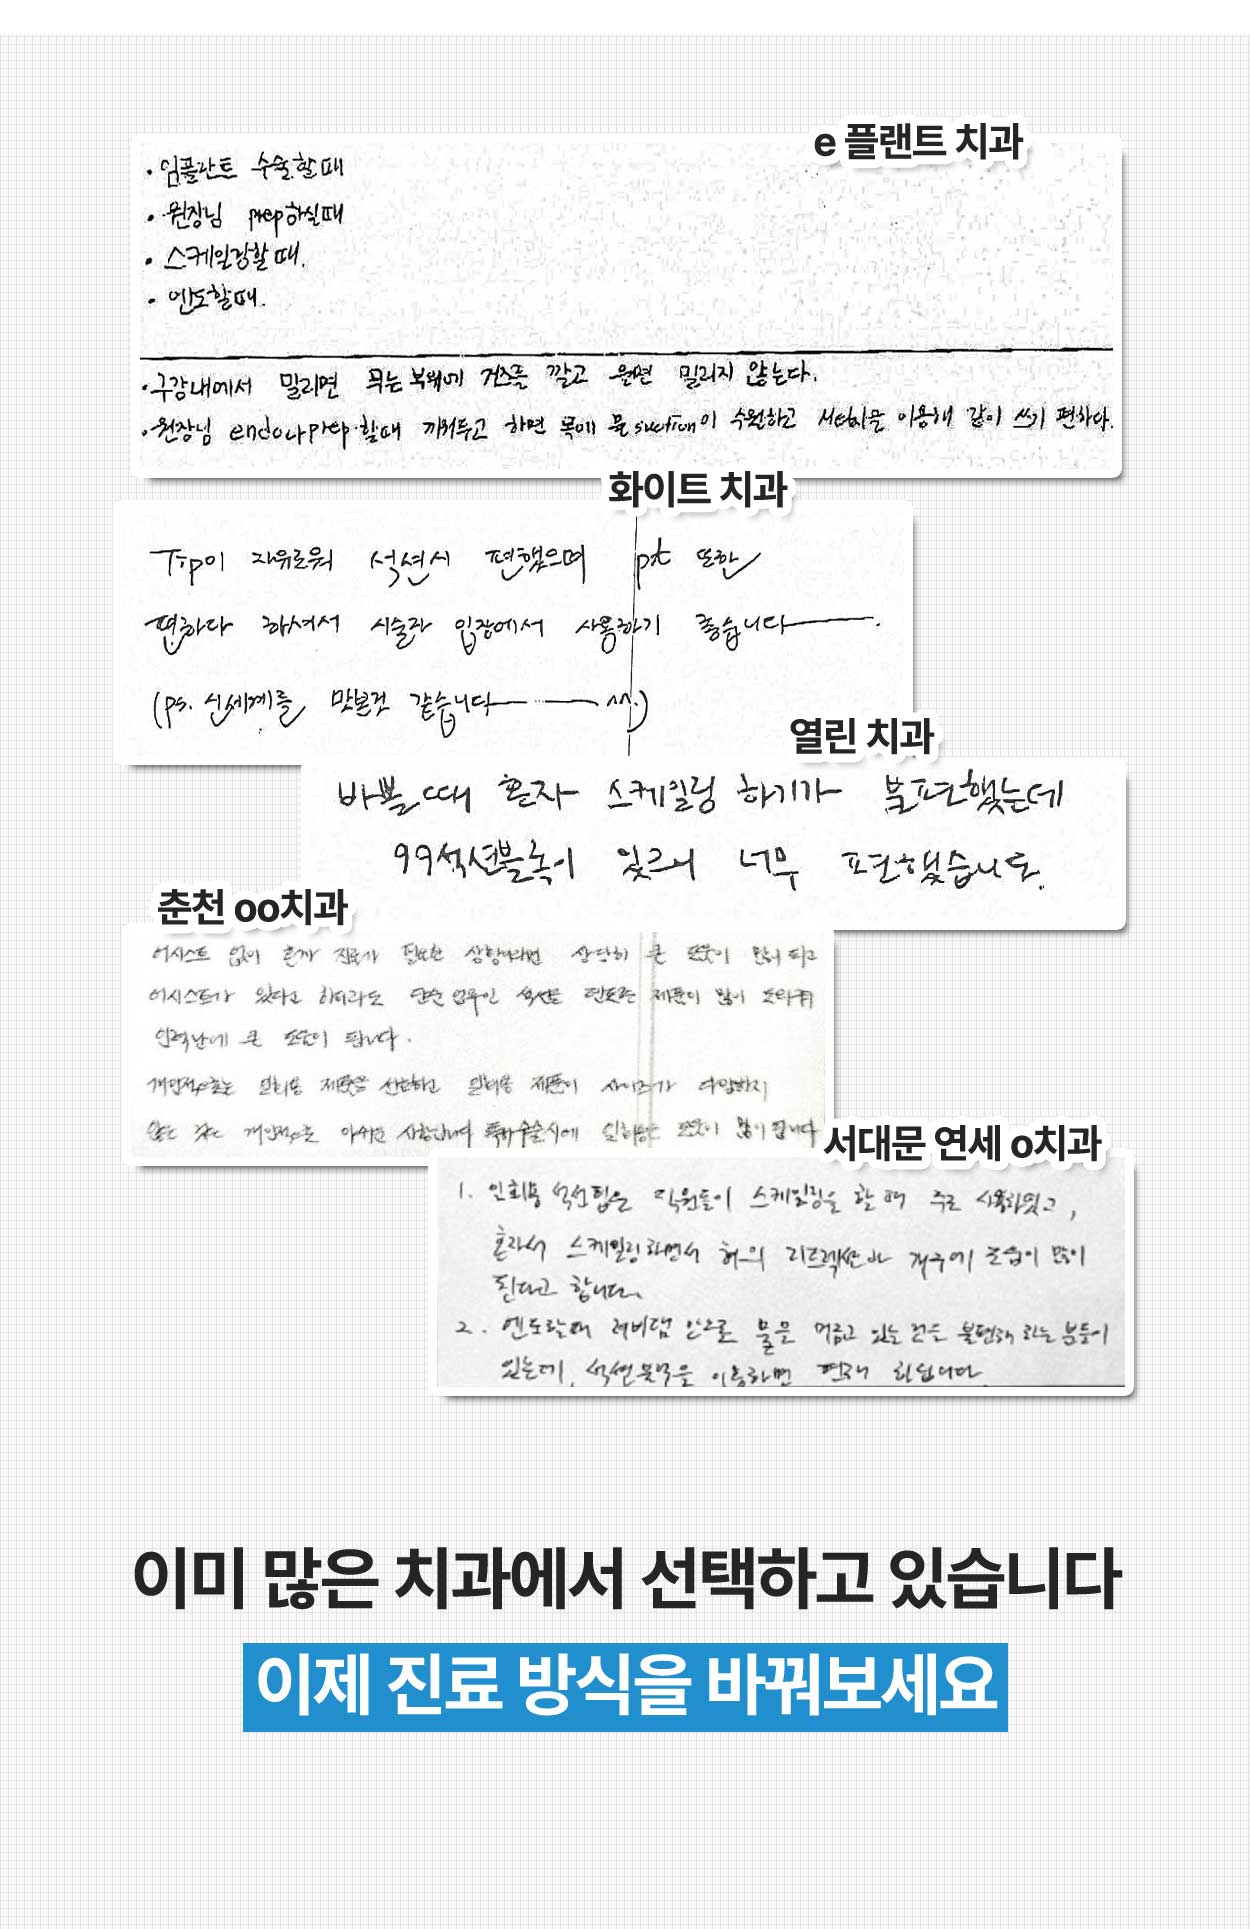 e 플랜트 치과
· 임플란트 수술할때
· 원장님 prep하실때
· 스케일링할때.
· 엔도할때.
· 구강내에서 밀리면 무는 부위에 거즈를 깔고 물면 밀리지 않는다.
· 원장님 endo나 prep 할때 끼워두고 하면 목에 물 suction이 수월하고 이용해 같이 쓰기 편하다.
화이트 치과
Tip이 자유로워 석션시 편했으며 pt 또한
편하다 하셔서 시술자 입장에서 사용하기 좋습니다
(ps. 신세계를 맛본것 같습니다 ^^.)
열린 치과
바쁠때 혼자 스케일링 하기가 불편했는데
99석션블록이 있으니 너무 편했습니다.
춘천 oo치과
어시스트 없이 혼자 진료가 필요한 상황이라면 상당히 큰 도움이 많이 되고
어시스트가 있다고 하더라도 단순 업무인 석션을 제품이 많이 도와줘
인력난에 큰 도움이 됩니다.
개인적으로는 일회용 제품을 선호하고 일회용 제품이 사이즈가 다양하지
않는 것은 개인적으로 아쉬운 사항입니다 특히 수술시에 도움이 많이 됩니다
서대문 연세 o치과
1. 일회용 석션팁은 직원들이 스케일링을 할 때 주로 사용하였고,
혼자서 스케일링하면서 혀의 리트렉션과 도움이 많이
된다고 합니다.
2. 엔도할때 러버댐 안으로 물을 머금고 있는 것을 불편해 하는 분들이
있는데, 석션블록을 이용하면 편해 하십니다.
이미 많은 치과에서 선택하고 있습니다
이제 진료 방식을 바꿔보세요